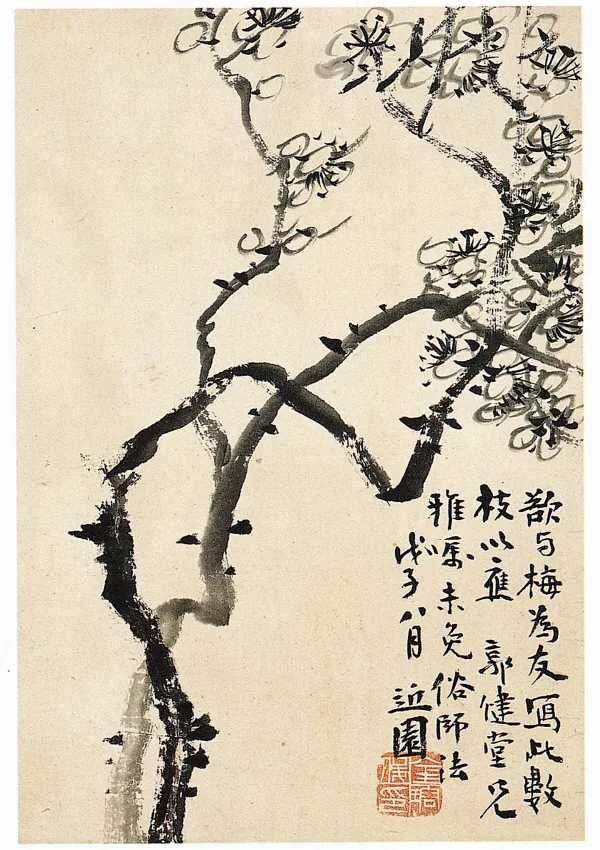 欲与梅為友寫此數
枝以應 郭健堂兄
雅屬未免俗師法
戊子八月 近園
金瑢俊印